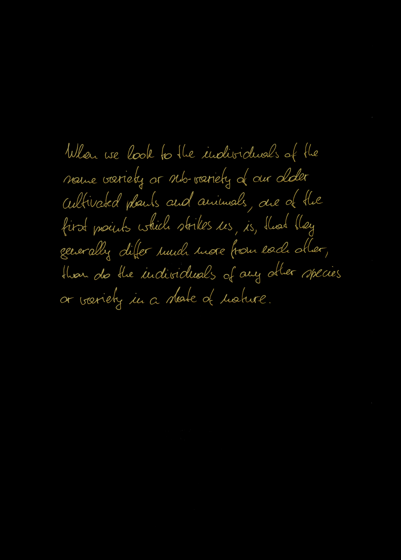 When we look to the individuals of the
same variety or sub-variety of our older
cultivated plants and animals, one of the
first points which strikes us, is, that they
generally differ much more from each other,
than do the individuals of any other species
or variety in a state of nature.